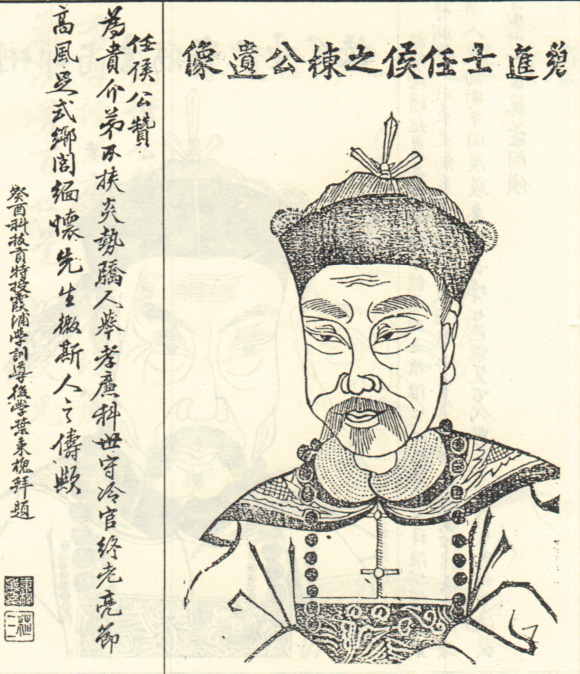 碧進士任侯之棟公遺像
任侯公贊
為貴介弟不扶炎勢驕人舉孝廉科世守冷官終老亮節
高風足式鄉閭緬懷先生微斯人之儔歟
癸酉科拔貢特授霞浦學訓導後學葉拜題